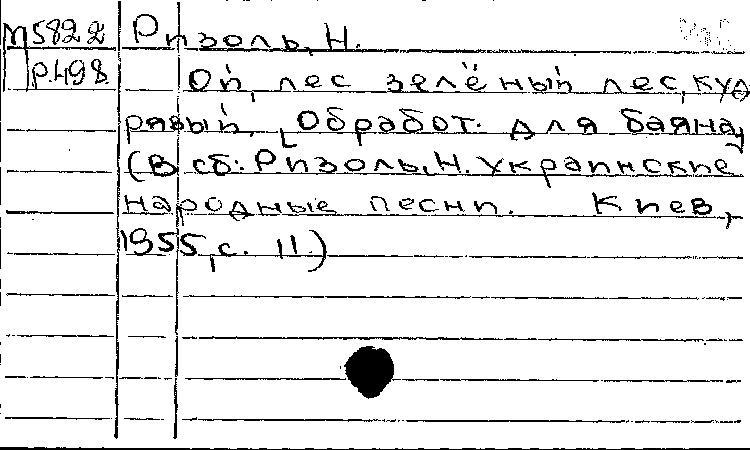 М582.2 Ризоль, Н.
Р.498 Ой, лес зелёный лес, куд
рявый. [Обработ. для баяна]
(В сб: Ризоль, Н. Украинские
народные песни. Киев,
1955, с. 11.)